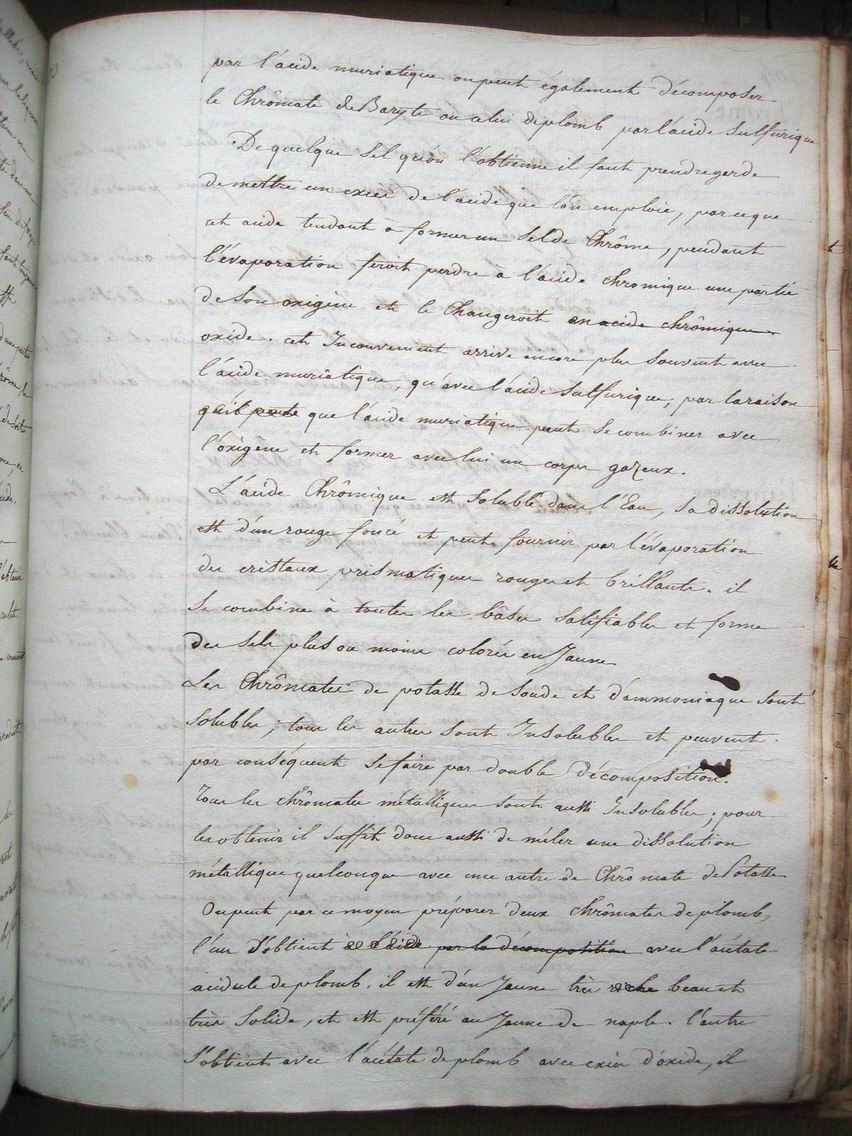 par l'acide muriatique. on peut également décomposer
le Chrômate de Baryte ou celui de plomb par l'acide Sulfurique
De quelque Sel qu'on l'obtienne il faut prendre garde
de mettre un excès de l'acide que l'on emploie, parceque
cet acide tendant à former un Sel de Chrôme, pendant
l'évaporation feroit perdre à l'acide chromique une partie
de Son oxigène et le Changeroit en acide chrômique
oxide. cet Inconvenient arrive encore plus Souvent avec
l'acide muriatique, qu'avec l'acide Sulfurique, par la raison
que l'acide muriatique peut Se combiner avec
l'oxigène et former avec lui un corps gazeux.
L'acide Chrômique est Soluble dans l'Eau, Sa dissolution
est d'un rouge foncé et peut fournir par l'évaporation
des cristaux prismatiques rouges et brillants. il
Se combine à toutes les bâses Salifiables et forme
des Sels plus ou moins colorés en Jaune
Les Chrômates de potasse de Soude et d'ammoniaque Sont
Solubles, tous les autres Sont Insolubles et peuvent
par conséquent Se faire par double décomposition.
Tous les chrômates métalliques Sont aussi Insolubles; pour
les obtenir il Suffit donc aussi de mêler une dissolution
métallique quelconque avec une autre de Chrômate de Potasse
On peut par ce moyen préparer deux chrômates de plomb,
l'un S'obtient à l'aide par la décomposition avec l'acétate
acidule de plomb, il est d'un Jaune très riche beau et
très Solide, et est préféré au Jaune de naples. l'autre
S'obtient avec l'acétate de plomb avec excès d'oxide, il